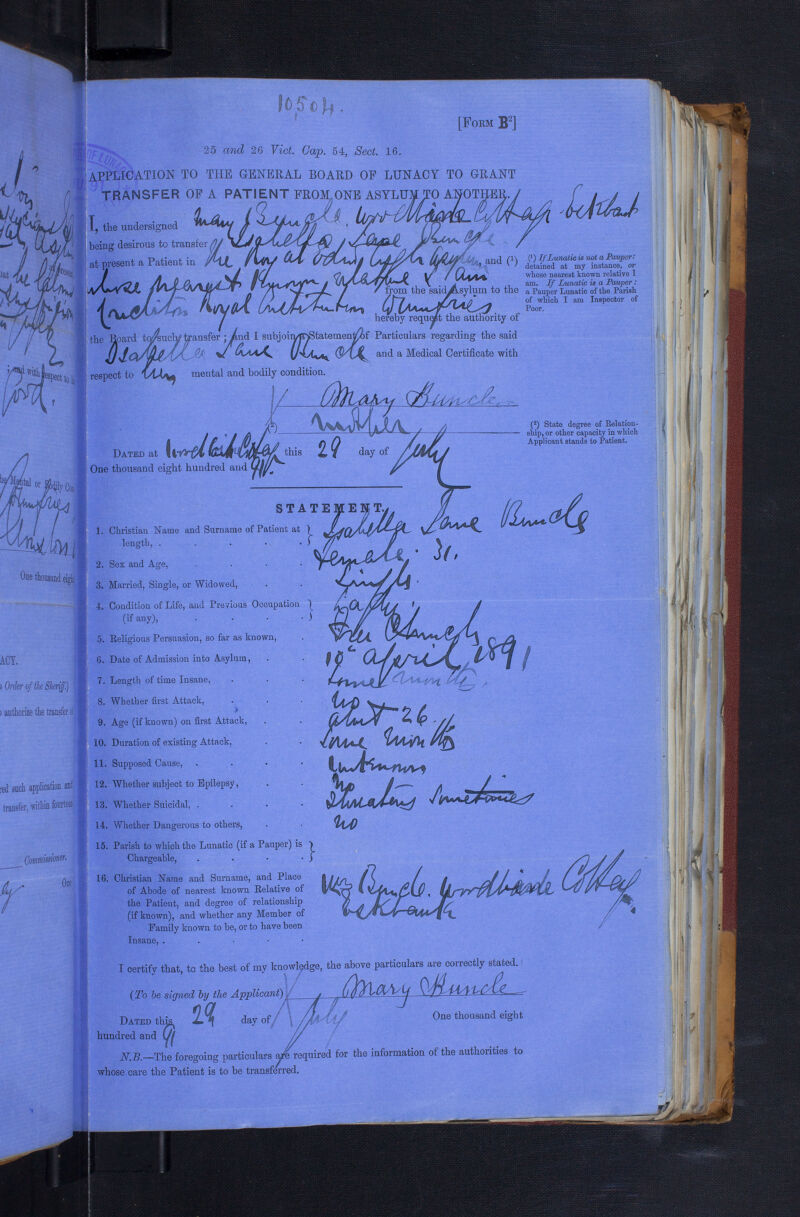 10504.
[FORM B²]
25 and 26 Vict. Cap. 54, Sect. 16.
APPLICATION TO THE GENERAL BOARD OF LUNACY TO GRANT
TRANSFER OF A PATIENT FROM ONE ASYLUM TO ANOTHER.
I, the undersigned Mary Buncle. Woodbank Cottage Eskbank
being desirous to transfer Isabella Jane Buncle
at present a Patient in the Royal Edinburgh Asylum, and (¹)
whose nearest known relative I am
from the said Asylum to the
Crichton Royal Institution Dumfries
hereby request the authority of
the Board to such transfer; and I subjoin a Statement of Particulars regarding the said
Isabella Jane Buncle and a Medical Certificate with
respect to her mental and bodily condition.
(¹) If Lunatic is not a Pauper:
detained at my instance, or
whose nearest known relative I
am. If Lunatic is a Pauper:
a Pauper Lunatic of the Parish
of which I am Inspector of
Poor.
Mary Buncle
(²) Mother
(²) State degree of Relation-
ship, or other capacity in which
Applicant stands to Patient.
DATED at Cottage this 29 day of July
One thousand eight hundred and 91.
STATEMENT.
1. Christian Name and Surname of Patient at length, . Isabella Jane Buncle
2. Sex and Age, Female. 31.
3. Married, Single, or Widowed, Single.
4. Condition of Life, and Previous Occupation (if any), Lady.
5. Religious Persuasion, so far as known, Free Church
6. Date of Admission into Asylum, 10th April 1891
7. Length of time Insane, Some months.
8. Whether first Attack, No
9. Age (if known) on first Attack, about 26.
10. Duration of existing Attack, Some months
11. Supposed Cause, Unknown
12. Whether subject to Epilepsy, No
13. Whether Suicidal, Threatens sometimes
14. Whether Dangerous to others, No
15. Parish to which the Lunatic (if a Pauper) is Chargeable,
16. Christian Name and Surname, and Place
of Abode of nearest known Relative of
the Patient, and degree of relationship
(if known), and whether any Member of
Family known to be, or to have been
Insane, .
Mrs Buncle. Woodbank Cottage
Eskbank
I certify that, to the best of my knowledge, the above particulars are correctly stated.
(To be signed by the Applicant) Mary Buncle
DATED this 29 day of July One thousand eight
hundred and 91
N.B.—The foregoing particulars are required for the information of the authorities to
whose care the Patient is to be transferred.
One thousand eigh
ACY.
Order of the Sheriff.)
authorize the transfer
red such application and
transfer, within fourteen
Commissioner.